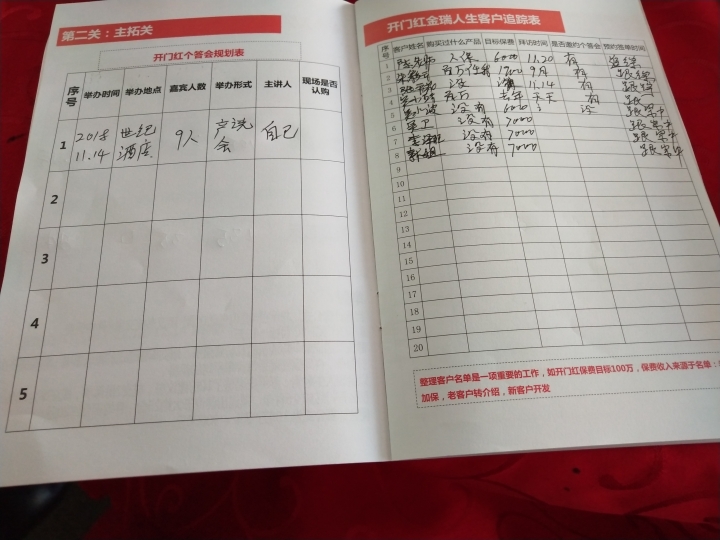 第二关：主拓关
开门红个答会规划表
序号 举办时间 举办地点 嘉宾人数 举办形式 主讲人 现场是否认购
1 2018 11.14 世纪酒店 9人 产说会 自己
2
3
4
5
开门红金瑞人生客户追踪表
序号 客户姓名 购买过什么产品 目标保费 拜访时间 是否邀约个答会 预约签单时间
1 人保 6000 11.20 有
2 百万任我 9月 有
3 没 11.14 有
4 百万 去年 天天 有
5 没有 6000 没
6 没有 7000
7 没有 7000
8 没有 7000
9
10
11
12
13
14
15
16
17
18
19
20
整理客户名单是一项重要的工作，如开门红保费目标100万，保费收入来源于名单：
加保，老客户转介绍，新客户开发